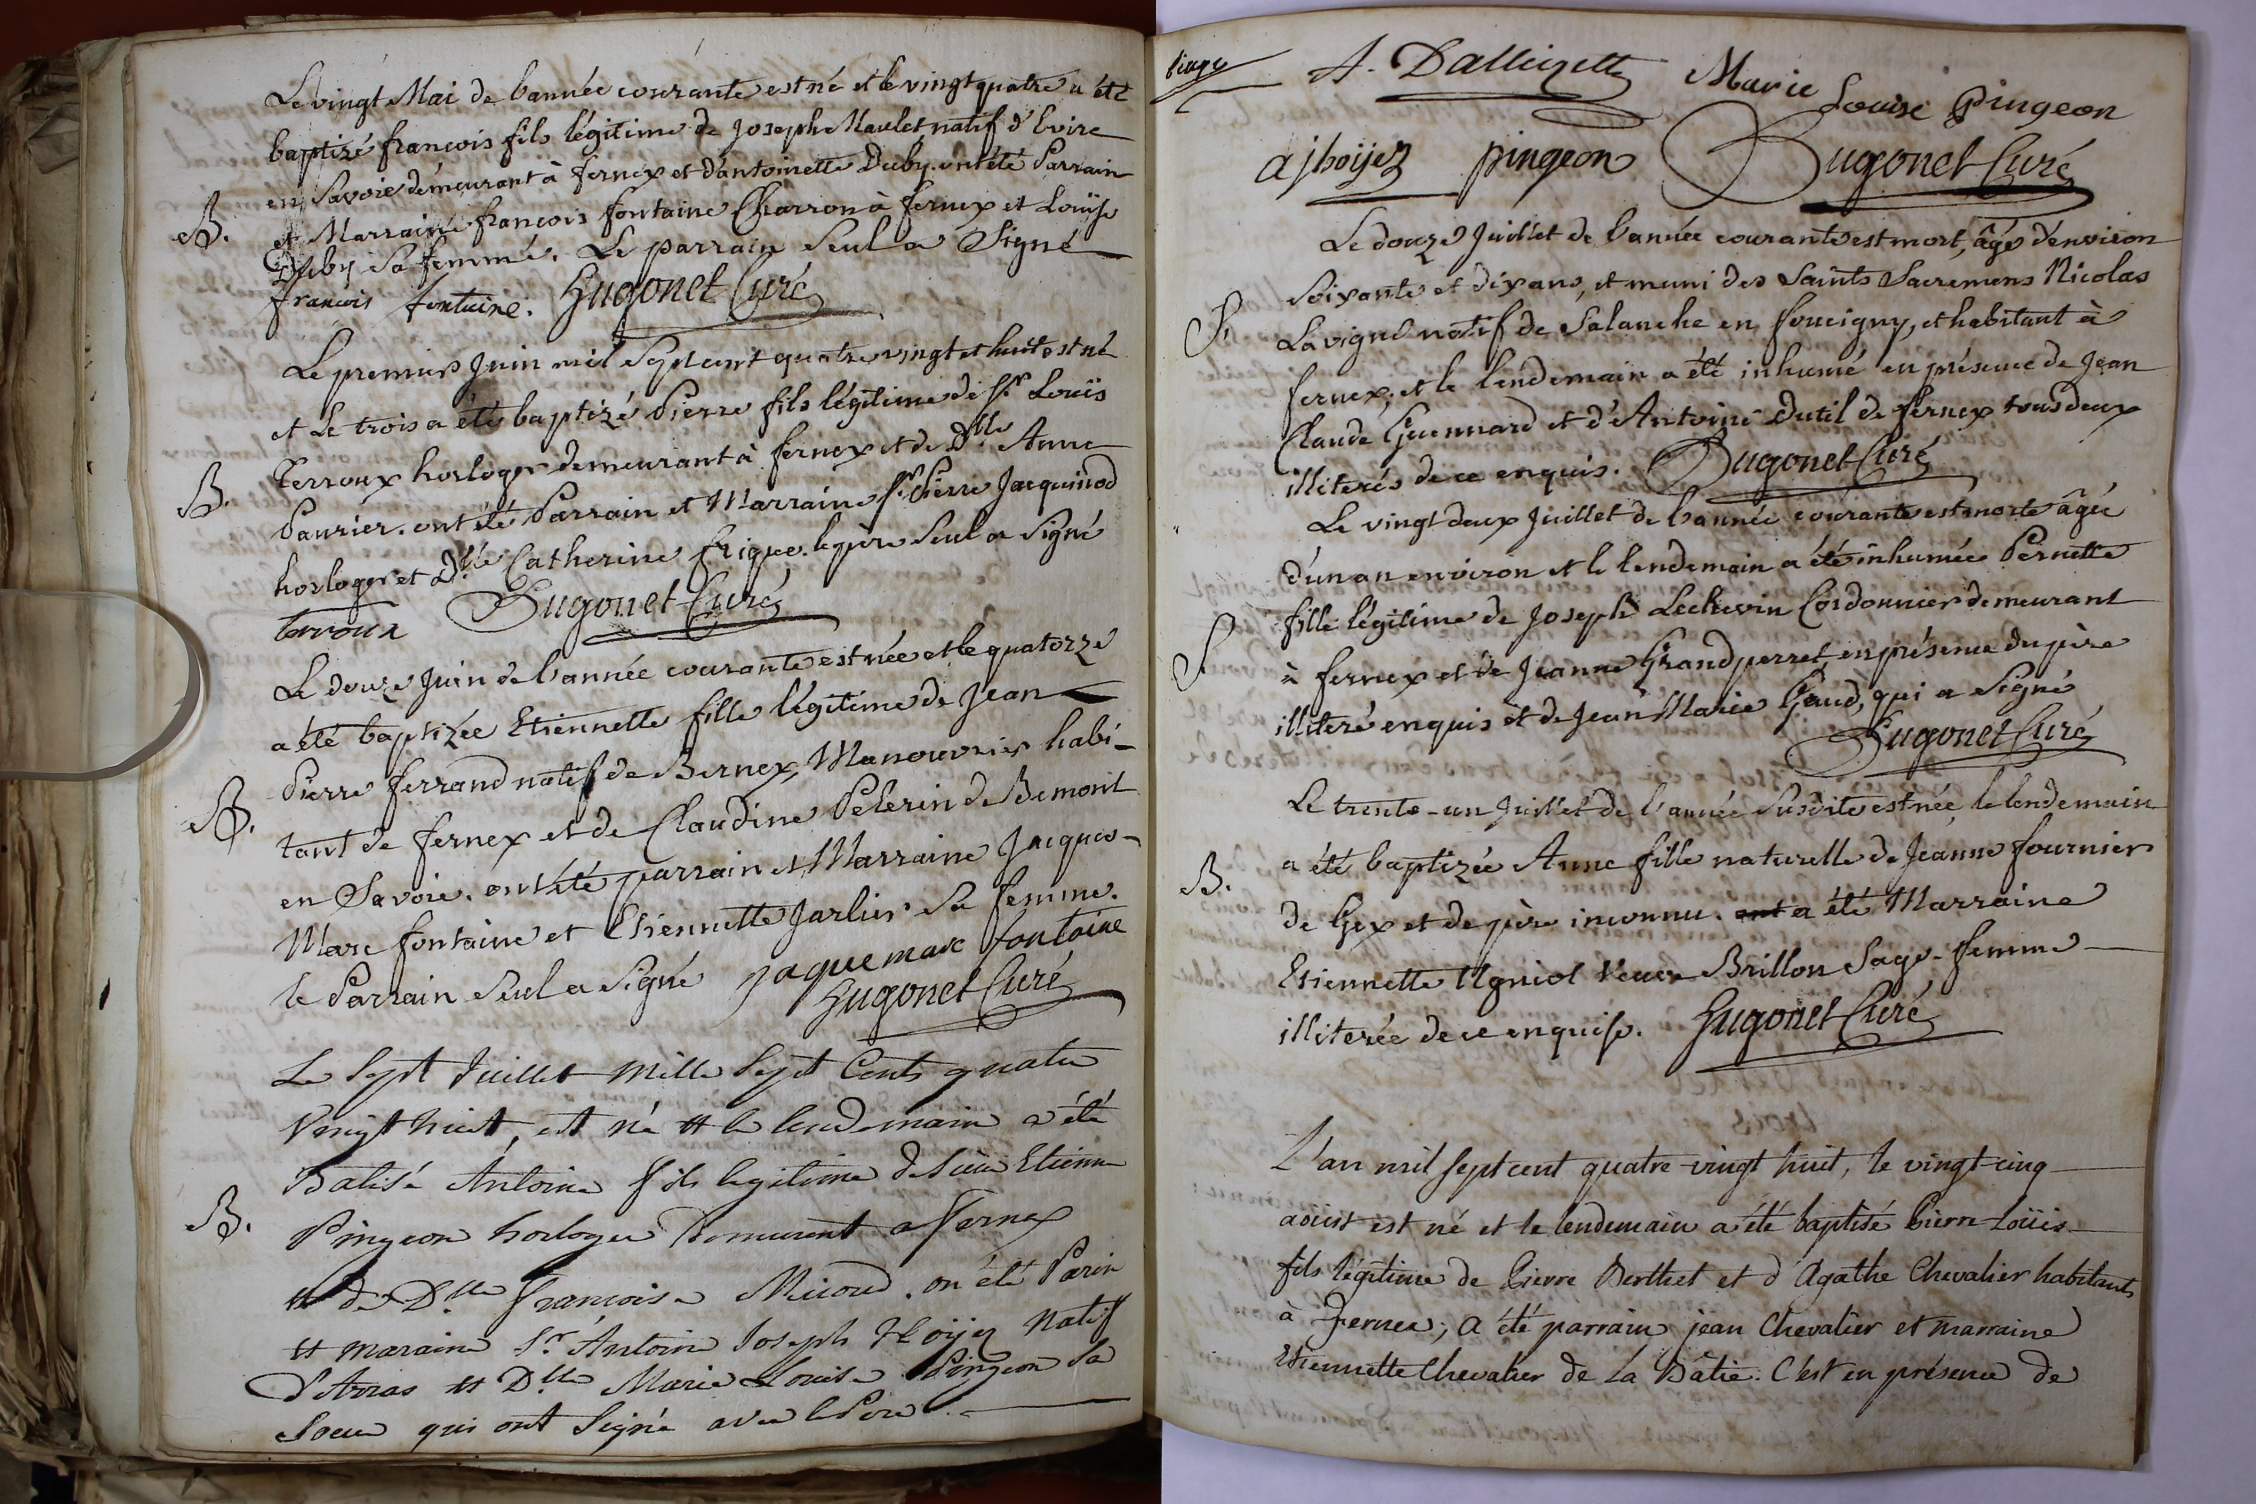 Le vingt Mai de l'année courante est né et le vingt quatre a été
baptizé françois fils légitime de Joseph Maulet natif d'Evire
en Savoie demeurant à fernex et d'antoinette Duby. ont été Parrain
B.
et Marraine françois fontaine Charron à fernex et Louïse
Duby sa femme. Le parrain seul a signé
françois fontaine. Hugonet Curé
Le premier Juin mil sept cent quatre vingt et huit est né
et le trois a été baptizé Pierre fils légitime de Sr. Louïs
Terroux horloger demeurant à fernex et de Dlle Anne
B.
Paurier. ont été Parrain et Marraine Sr. Pierre Jacquinod
horloger et Dlle Catherine frique. le père seul a signé
terroux Hugonet Curé
Le douze Juin de l'année courante est née et le quatorze
a été baptizée Etiennette fille légitime de Jean
Pierre ferrand natif de Bernex, Manouvrier habi-
B.
tant de fernex et de Claudine Pelerin de Bemont
en Savoie. ont été parrain et Marraine Jacques-
Marc fontaine et Etiennette Jarlier sa femme.
le Parrain seul a signé jaque marc fontaine
Hugonet Curé
Le Sept Juillet mille Sept Cents quatre
Vingt huit, est né et le lendemain a été
Batisé Antoine fils legitime de Sieur Etienne
B.
Pingeon horloger Demeurant a fernex
et de Dlle françoise Micoud. on été Parin
et maraine Sr. Antoine Joseph Hoÿez Natif
D'Arras et Dlle Marie Louise Pingeon Sa
Soeur qui ont Signé avec le Pere.
A. Dallizette Marie Louise Pingeon
ajhoÿez pingeon Hugonet Curé
Le douze Juillet de l'année courante est mort, âgé d'environ
soixante et dix ans, et muni des Saints Sacremens Nicolas
S.
Lavigne natif de Salanche en foucigny, et habitant à
fernex; et le lendemain a été inhumé en présence de Jean
Claude Guennard et d'Antoine Dutil de fernex tous deux
illiterés de ce enquis. Hugonet Curé
Le vingt deux Juillet de l'année courante est morte âgée
d'un an environ et le lendemain a été inhumée Pernette
fille légitime de Joseph Lechevin Cordonnier demeurant
S.
à fernex et de Jeanne Grandperret, en présence du père
illiteré enquis et de Jean Marie Gaud, qui a signé
Hugonet Curé
Le trente-un Juillet de l'année susdite est née, le lendemain
a été baptizée Anne fille naturelle de Jeanne fournier
B.
de Gex et de père inconnu. ont a été Marraine
Etiennette Ugniot Veuve Brillon Sage-femme
illiterée de ce enquise. Hugonet Curé
L'an mil sept cent quatre-vingt huit, le vingt-cinq
août est né et le lendemain a été baptisé Pierre Loüis
fils légitime de Pierre Berthet et d'Agathe Chevalier habitants
à Fernex; a été parrain jean Chevalier et marraine
Etiennette Chevalier de La Bâtie. C'est en présence de